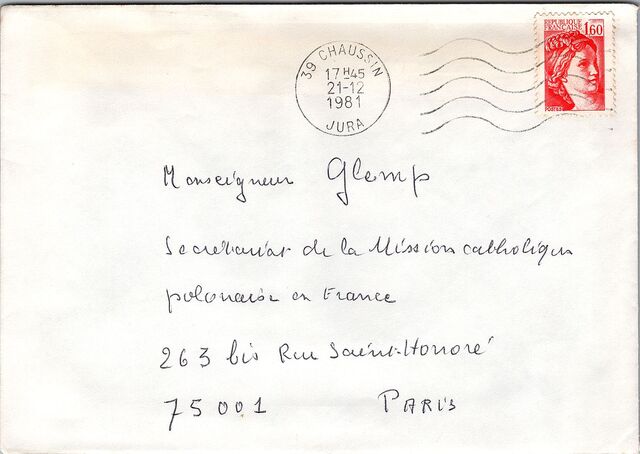 REPUBLIQUE
FRANCAISE 1,60
POSTES
39 CHAUSSIN
17H45
21-12
1981
JURA
Monseigneur Glemp
Secretariat de la Mission catholique
polonaise en France
263 bis Rue Saint-Honoré
75001 PARIS